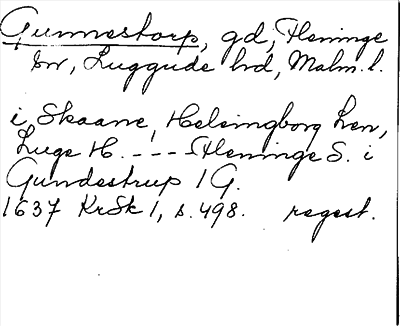 Gunnestorp, gd, Fleninge
sn, Luggude hd, Malm. l.
i, Skaane, Helsingborg Len,
Luge H. - - - Fleninge S. i
Gundestrup 1 G.
1637 KrSk 1, s. 498. regest.